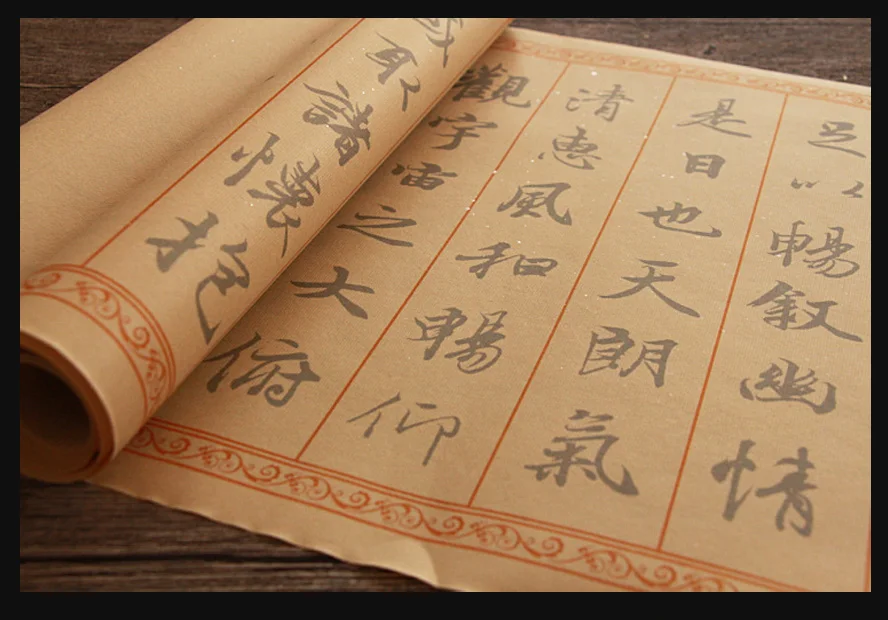 足以暢叙幽情
是日也天朗氣
清惠風和暢仰
觀宇宙之大俯
或取諸懷抱